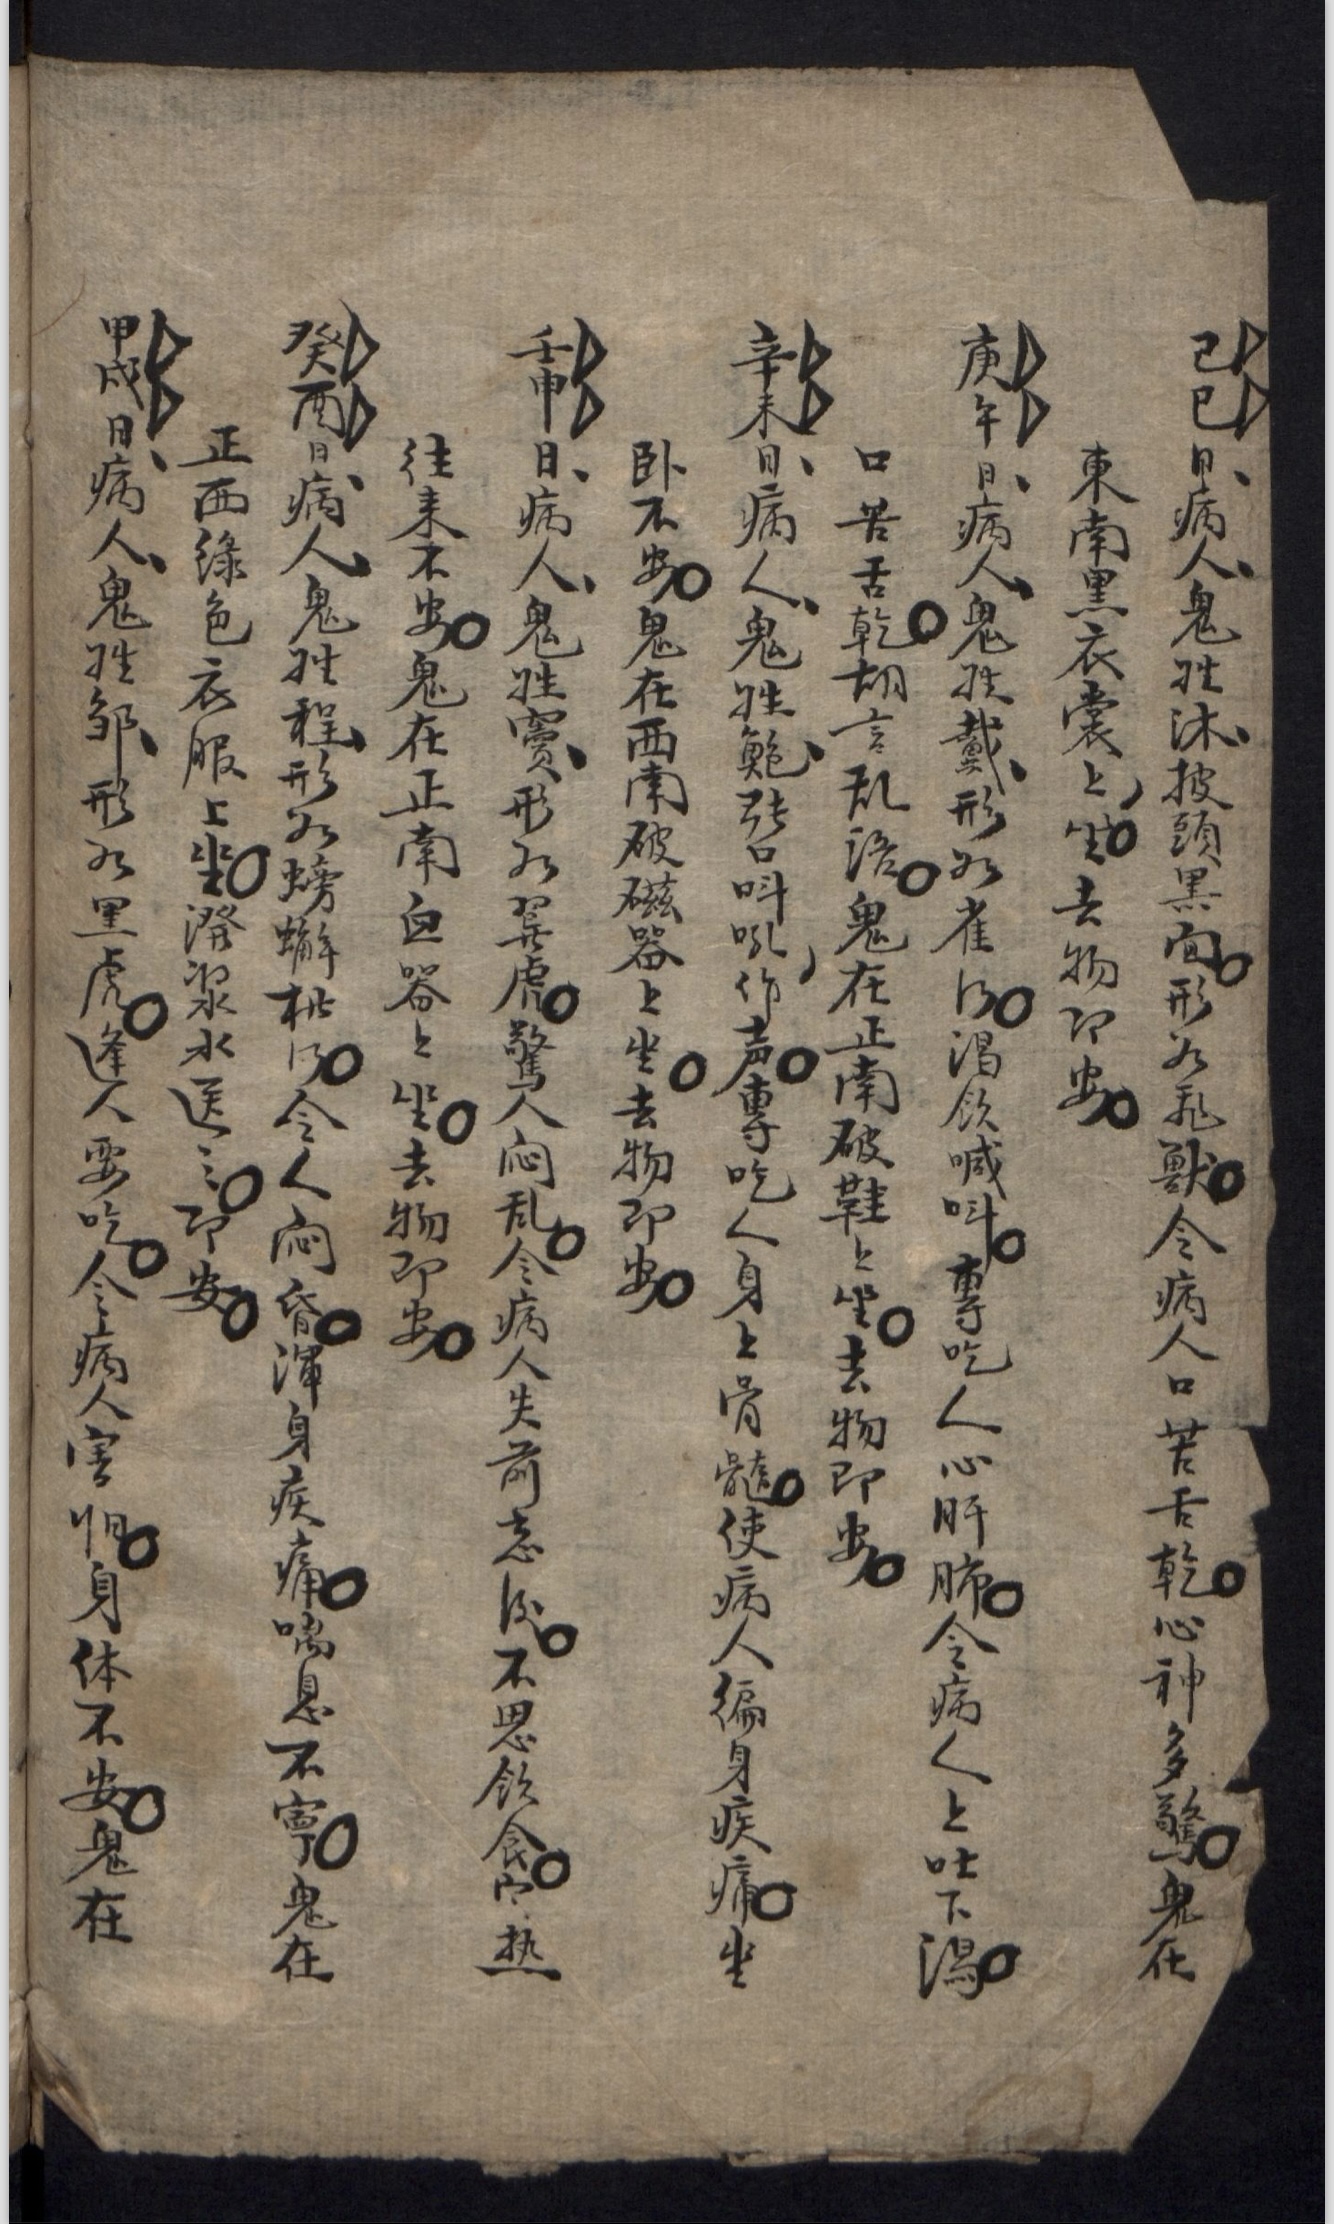 己巳日病人鬼姓沐披頭黑面形如乖獸令病人口苦舌乾心神多驚鬼在
東南黑衣裳上坐去物卽安
庚午日病人鬼姓戴形如雀行渴飲喊呌專吃人心肝肺令病人上吐下瀉
口苦舌乾胡言乱語鬼在正南破鞋上坐去物即安
辛未日病人鬼姓鮑張口呌吼作声專吃人身上骨髓使病人徧身疾痛坐
卧不安鬼在西南破磁器上坐去物卽安
壬申日病人鬼姓竇形如虎驚人悶乱令病人失前忘後不思飲食寒热
往来不安鬼在正南血器上坐去物卽安
癸酉日病人鬼姓程形如螃蠏橫行令人悶昏渾身疾痛喘息不寧鬼在
正西綠色衣服上坐潑漿水送之卽安
甲戌日病人鬼姓邹形如黑虎逢人要吃令病人害怕身体不安鬼在